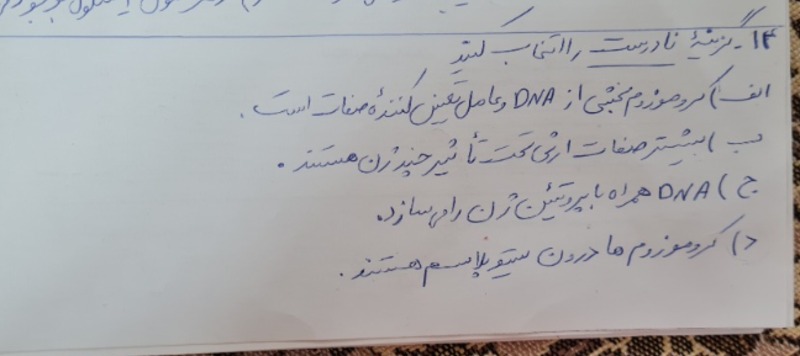 ۱۴ـ گزینهٔ نادرست را انتخاب کنید
الف) کروموزوم بخشی از DNA و عامل تعیین کنندهٔ صفات است.
ب) بیشتر صفات ارثی تحت تأثیر چند ژن هستند.
ج) DNA همراه با پروتئین ژن را می سازد.
د) کروموزوم ها درون سیتوپلاسم هستند.